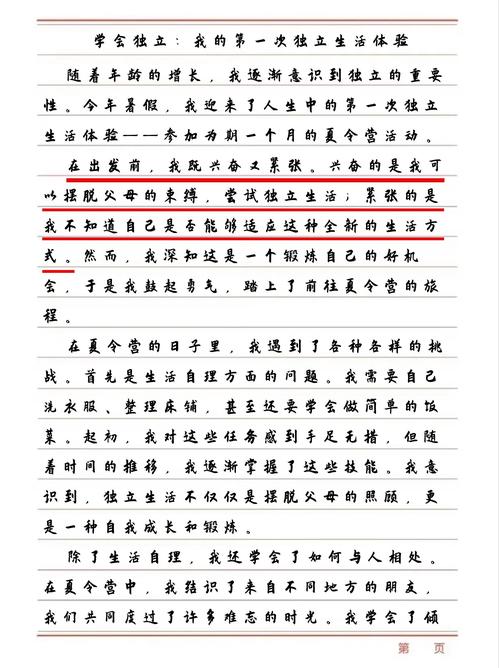 学会独立：我的第一次独立生活体验
随着年龄的增长，我逐渐意识到独立的重要
性。今年暑假，我迎来了人生中的第一次独立
生活体验——参加为期一个月的夏令营活动。
在出发前，我既兴奋又紧张。兴奋的是我可
以摆脱父母的束缚，尝试独立生活；紧张的是
我不知道自己是否能够适应这种全新的生活方
式。然而，我深知这是一个锻炼自己的好机
会，于是我鼓起勇气，踏上了前往夏令营的旅
程。
在夏令营的日子里，我遇到了各种各样的挑
战。首先是生活自理方面的问题。我需要自己
洗衣服、整理床铺，甚至还要学会做简单的饭
菜。起初，我对这些任务感到手足无措，但随
着时间的推移，我逐渐掌握了这些技能。我意
识到，独立生活不仅仅是摆脱父母的照顾，更
是一种自我成长和锻炼。
除了生活自理，我还学会了如何与人相处。
在夏令营中，我结识了来自不同地方的朋友，
我们共同度过了许多难忘的时光。我学会了倾
第 页